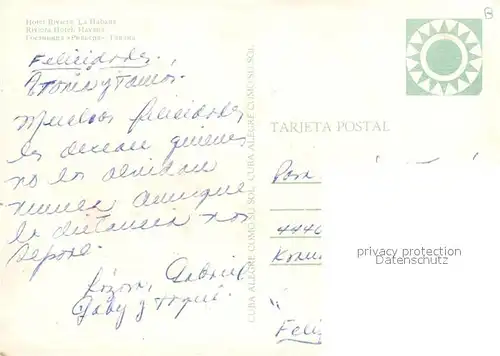 Hotel Riviera, La Habana
Riviera Hotel, Havana
Гостиница «Ривьера» Гавана
Felicidades,
Muchas felicidades
les desean quienes
no los olvidan
nunca aunque
la distancia nos
separe.
Gabriel
Gaby y
CUBA ALEGRE COMO SU SOL. CUBA ALEGRE COMO SU SOL. CUBA ALEGRE COMO SU SOL
TARJETA POSTAL
Para
privacy protection
Datenschutz